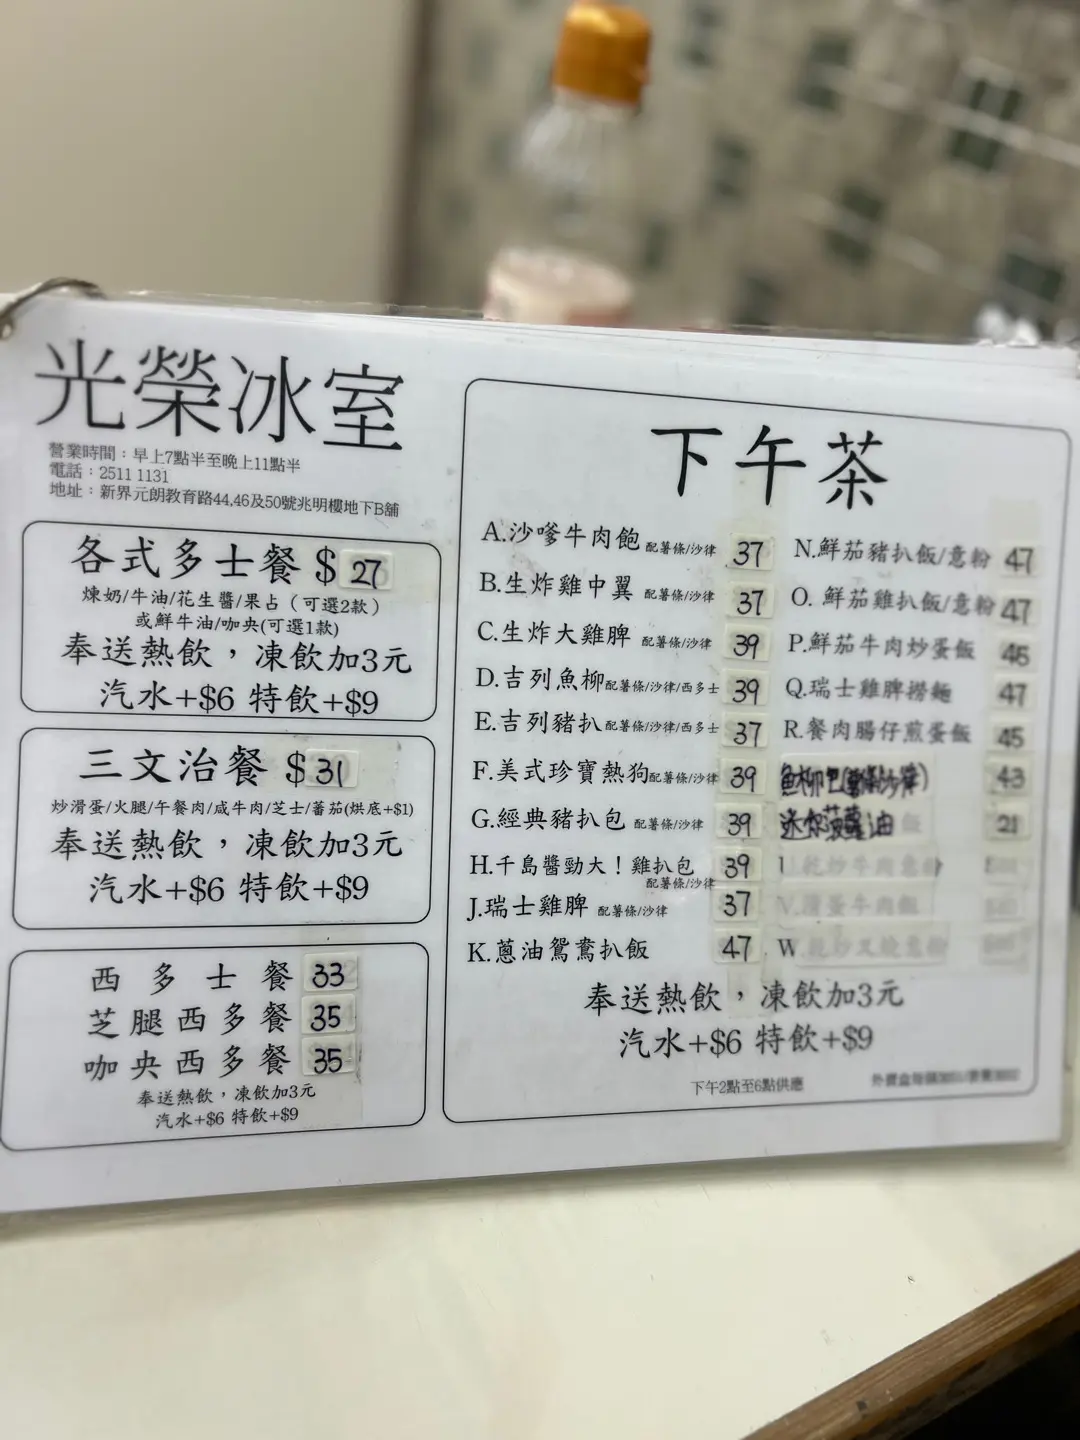 光榮冰室
營業時間：早上7點半至晚上11點半
電話：2511 1131
地址：新界元朗教育路44,46及50號兆明樓地下B舖
各式多士餐 $ 27
煉奶/牛油/花生醬/果占（可選2款）
或鮮牛油/咖央(可選1款)
奉送熱飲，凍飲加3元
汽水+$6 特飲+$9
三文治餐 $ 31
炒滑蛋/火腿/午餐肉/咸牛肉/芝士/蕃茄(烘底+$1)
奉送熱飲，凍飲加3元
汽水+$6 特飲+$9
西多士餐 33
芝腿西多餐 35
咖央西多餐 35
奉送熱飲，凍飲加3元
汽水+$6 特飲+$9
下午茶
A.沙嗲牛肉飽 配薯條/沙律 37
B.生炸雞中翼 配薯條/沙律 37
C.生炸大雞髀 配薯條/沙律 39
D.吉列魚柳配薯條/沙律/西多士 39
E.吉列豬扒配薯條/沙律/西多士 37
F.美式珍寶熱狗配薯條/沙律 39
G.經典豬扒包 配薯條/沙律 39
H.千島醬勁大！雞扒包 39
配薯條/沙律
J.瑞士雞髀 配薯條/沙律 37
K.蔥油鴛鴦扒飯 47
N.鮮茄豬扒飯/意粉 47
O. 鮮茄雞扒飯/意粉 47
P.鮮茄牛肉炒蛋飯 46
Q.瑞士雞髀撈麵 47
R.餐肉腸仔煎蛋飯 45
魚柳包(薯條沙律) 43
迷你菠蘿油 21
W
奉送熱飲，凍飲加3元
汽水+$6 特飲+$9
下午2點至6點供應